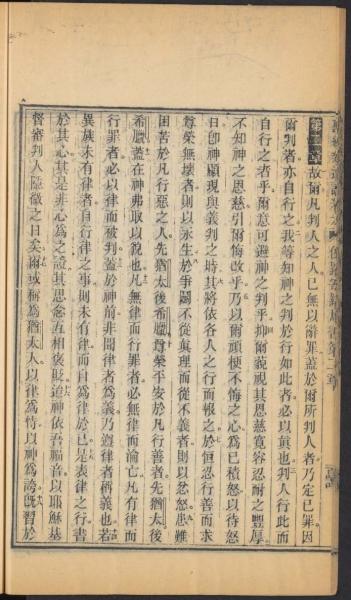 第二章 故爾凡判人之人已無以辯罪蓋於爾所判人者乃定己罪因
爾判者亦自行之我等知神之判於行如此者必以真也判人行此而
自行之者乎爾意可避神之判乎抑爾藐視其恩慈寬容忍耐之豐厚
不知神之恩慈引爾悔改乎乃以爾頑梗不悔之心爲己積怒以待怒
日卽神顯現與義判之時其將依各人之行而報之於恒忍行善而求
尊榮無壞者則以永生於爭鬬不從真理而從不義者則以忿怒患難
困苦於凡行惡之人先猶太後希臘尊榮平安於凡行善者先猶太後
希臘蓋在神弗取以貌也凡無律而行罪者必無律而淪亡凡有律而
行罪者必以律而被判蓋於神前非聞律者爲義乃遵律者稱義也若
異族未有律者自行律之事則未有律而自爲律於己是表律之行書
於其心其是非心爲之證其思念互相褒貶迨神依吾福音以耶穌基
督審判人隱微之日矣爾或稱爲猶太人以律爲恃以神爲誇旣習於